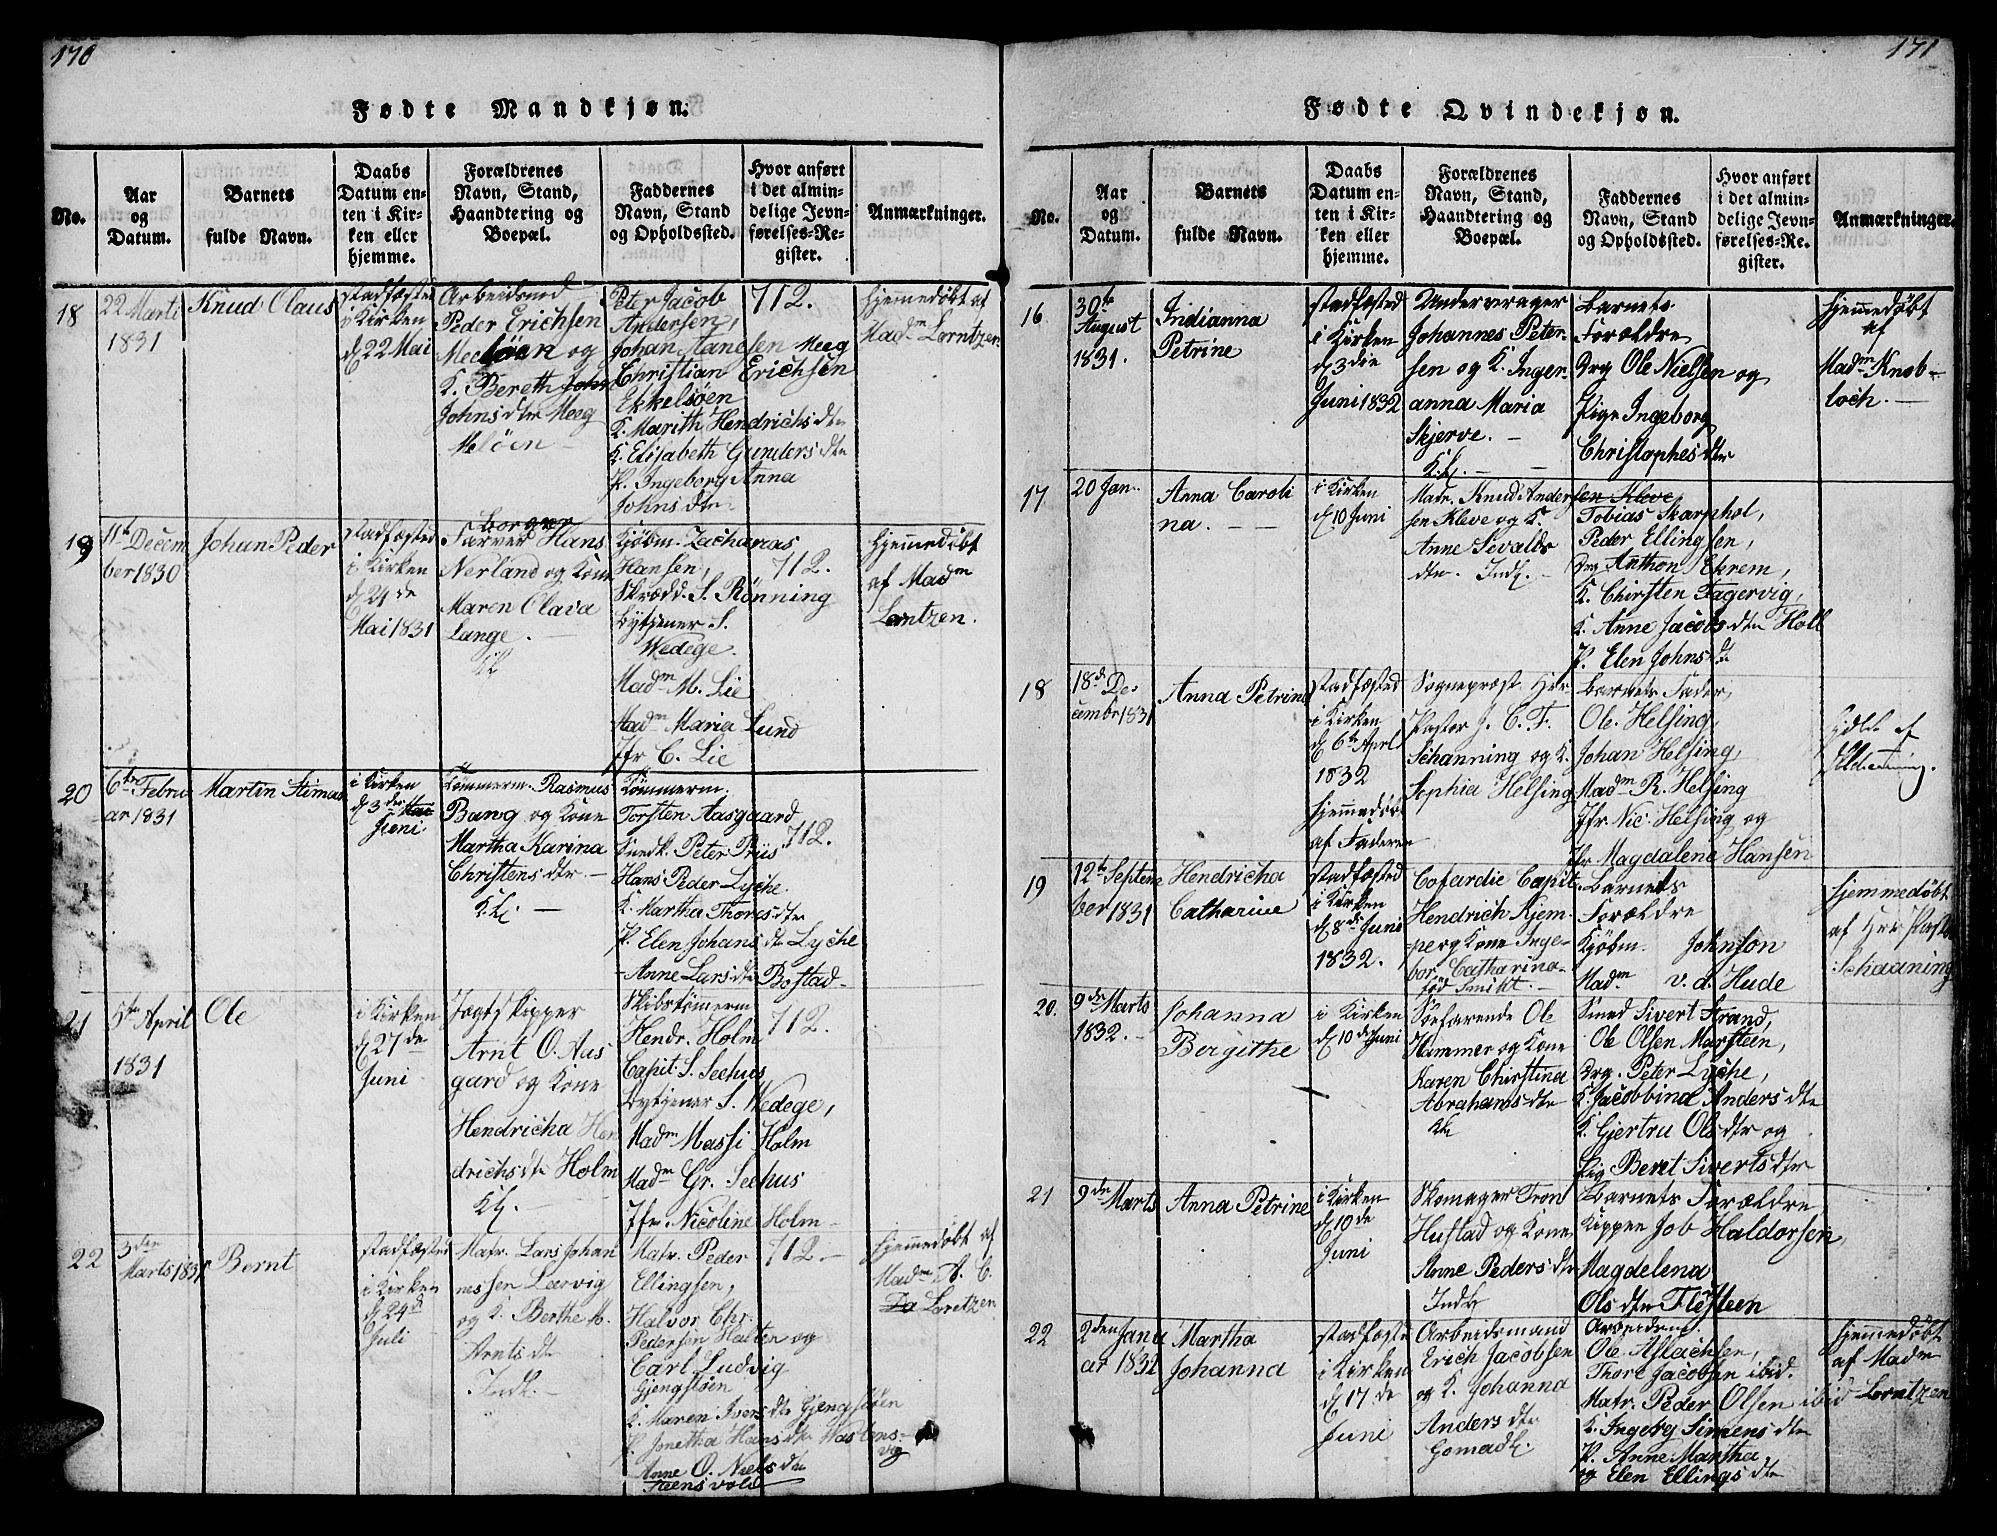 170
Fødte Mandkjøn.
No.
Aar
og
Datum.
Barnets
fulde Navn.
Daabs
Datum en-
ten i Kir-
ken eller
hjemme.
Forældrenes
Navn, Stand,
Haandtering og
Boepæl.
Faddernes
Navn, Stand
og Opholdssted.
Hvor anført
i det almin-
delige Jevn-
førelses-Re-
gister.
Anmærkninger.
18
22 Marti
1831
Knud Olaus
stadfæstet
i Kirken
d. 22 Mai
Arbeidsmd
Peder Erichsen
Meeløen og
K. Bereth
Johnsdtr Moeg
Meløen
Peter Jacob
Andersen,
Johan Hansen Moeg
Christian Erichsen
Ekkelsöen
K. Marith Hendrichsdtr
K. Elisabeth Gundersdtr
P. Ingeborg Anna
Johnsdtr
712.
Hjemmedøbt af
Madm Lorntzen
19
11te Decem
ber 1830
Johan Peder
stadfæsted
i Kirken
d. 24de
Mai 1831
Borger
Farver Hans
Nerland og Kone
Maren Olava
Lange.
Kjøbm. Zacharias
Hansen,
Skrædd. S. Rönning
Bytjener S.
Wedege.
Madm M. Lie
Madm Maria Lund
Jfr C. Lie
712.
Hjemmedøbt
af Madm
Lorntzen.
20
6te Febru
ar 1831
Martin
i Kirken
d. 3die
Juni
Tömmerm. Rasmus
Bang og Kone
Martha Karina
Christensdtr
K.
Tömmerm.
Torsten Aasgaard
Snedk. Peter Priis
Hans Peder Lyche
K. Martha Thoresdtr
P. Elen Johansdtr Lyche
- Anne Larsdtr Bostad
712.
21
5te April
1831
Ole
i Kirken
d. 27de
Juni
Jagtskipper
Arnt O. Aas
gard og Kone
Hendricha Hen
drichsdtr Holm
K.
Skibstömerm
Hendr. Holm
Capit. S. Seehus
Bytjener S. Wedege,
Madm Massi Holm
Madm Gr. Seehus
Jfr Nicoline Holm
712.
22
3den
Marts 1831
Bernt
stadfæsted
i Kirken
d. 24de
Juli
Matr. Lars Johan
nessen Lærvig
og K. Berthe M.
Arntsdtr
Indh.
Matr. Peder
Ellingsen,
Halvor Chr.
Pedersön Halten og
Carl Ludvig
Gjengstöen
K. Maren Iversdtr Gjengstöen
P. Jonetha Hansdtr
Anne O. Nielsdtr
Steensvold
712.
Hjemmedøbt af
Madm A. C.
Loretzen
171
Fødte Qvindekjøn.
No.
Aar
og
Datum.
Barnets
fulde Navn.
Daabs
Datum en-
ten i Kir-
ken eller
hjemme.
Forældrenes
Navn, Stand,
Haandtering og
Boepæl.
Faddernes
Navn, Stand
og Opholdssted.
Hvor anført
i det almin-
delige Jevn-
førelses-Re-
gister.
Anmærkninger.
16
30te
August
1831.
Indianna
Petrine
stadfæsted
i Kirken
d. 3die
Juni 1832
Undervrager
Johannes Peter-
sen og K. Inger-
anna Maria
Skjerve.
K.
Barnets
Forældre
Drg Ole Nielsen og
Pige Ingeborg
Christophesdtr
Hjemmedøbt
af
Madm Knob-
loch.
17
20 Jan.
Anna Caroli
na.
i Kirken
d. 10 Juni
Matr. Knud Ander
sen Kleve og K.
Anne Sevalds
dtr. Indh.
Tobias Skarphol,
Peder Ellingsen,
Drg Anthon Ekrem,
K. Chirsten Fagervig,
K. Anne Jacobsdtr Holl
P. Elen Johnsdtr
18
18de De
cembr 1831
Anna Petrina
stadfæsted
i Kirken
d. 6te April
1832
Hjemmedøbt
af Faderen
Sogneprest Her
Pastor J. C. F.
Schanning og K.
Sophia Helsing
Barnets Fader,
Ole Helsing
Johan Helsing,
Madm R. Helsing
Jfr. Nic. Helsing og
Jfr Magdalene Hansen
19
12te Septem
ber 1831
Hendricha
Catharine
stadfæsted
i Kirken
d. 8de Juni
1832.
Cofardie Capit.
Hendrich Kjem-
pe og Kone Inge-
bor Catharina
fød Smidt.
Barnets
Forældre
Kjøbm. Johnson
Madm v. d. Hude
Hjemmedøbt
af Her Pastor
Schanning
20.
9de Marts
1832.
Johanna
Bergithe
i Kirken
d. 10de Juni
Söefarende Ole
Hammer og Kone
Karen Chirstina
Abrahamsdtr
Smed Sivert Strand,
Ole Olsen Marsteen,
Drg. Peter Lyche,
K. Jacobbina Andersdtr
K. Gjertru Olsdtr og
Pig Beret Sivertsdtr
21
9de Marts
Anna Petrine
i Kirken
d. 10de
Juni
Skomager Tron
Hustad og Kone
Anne Pedersdtr
Indh
Barnets Forældre,
Job Haldorsen,
Magdelena
Olsdtr Flösteen
22
2den Janu
ar 1832
Martha
Johanna
stadfæste
i Kirken
d. 17de
Juni
Arbeidsmand
Erich Jacobsen
og K. Johanna
Andersdtr
Gomadl.
Arbeidsm
Ole Aslachsen,
Thore Jacobsen ibid.
Matr. Peder Olsen ibid
K. Ingebg Simensdtr
P. Anne Martha
og Elen Ellingsdtr
Hjemmedøbt
af Madm
Lorntzen